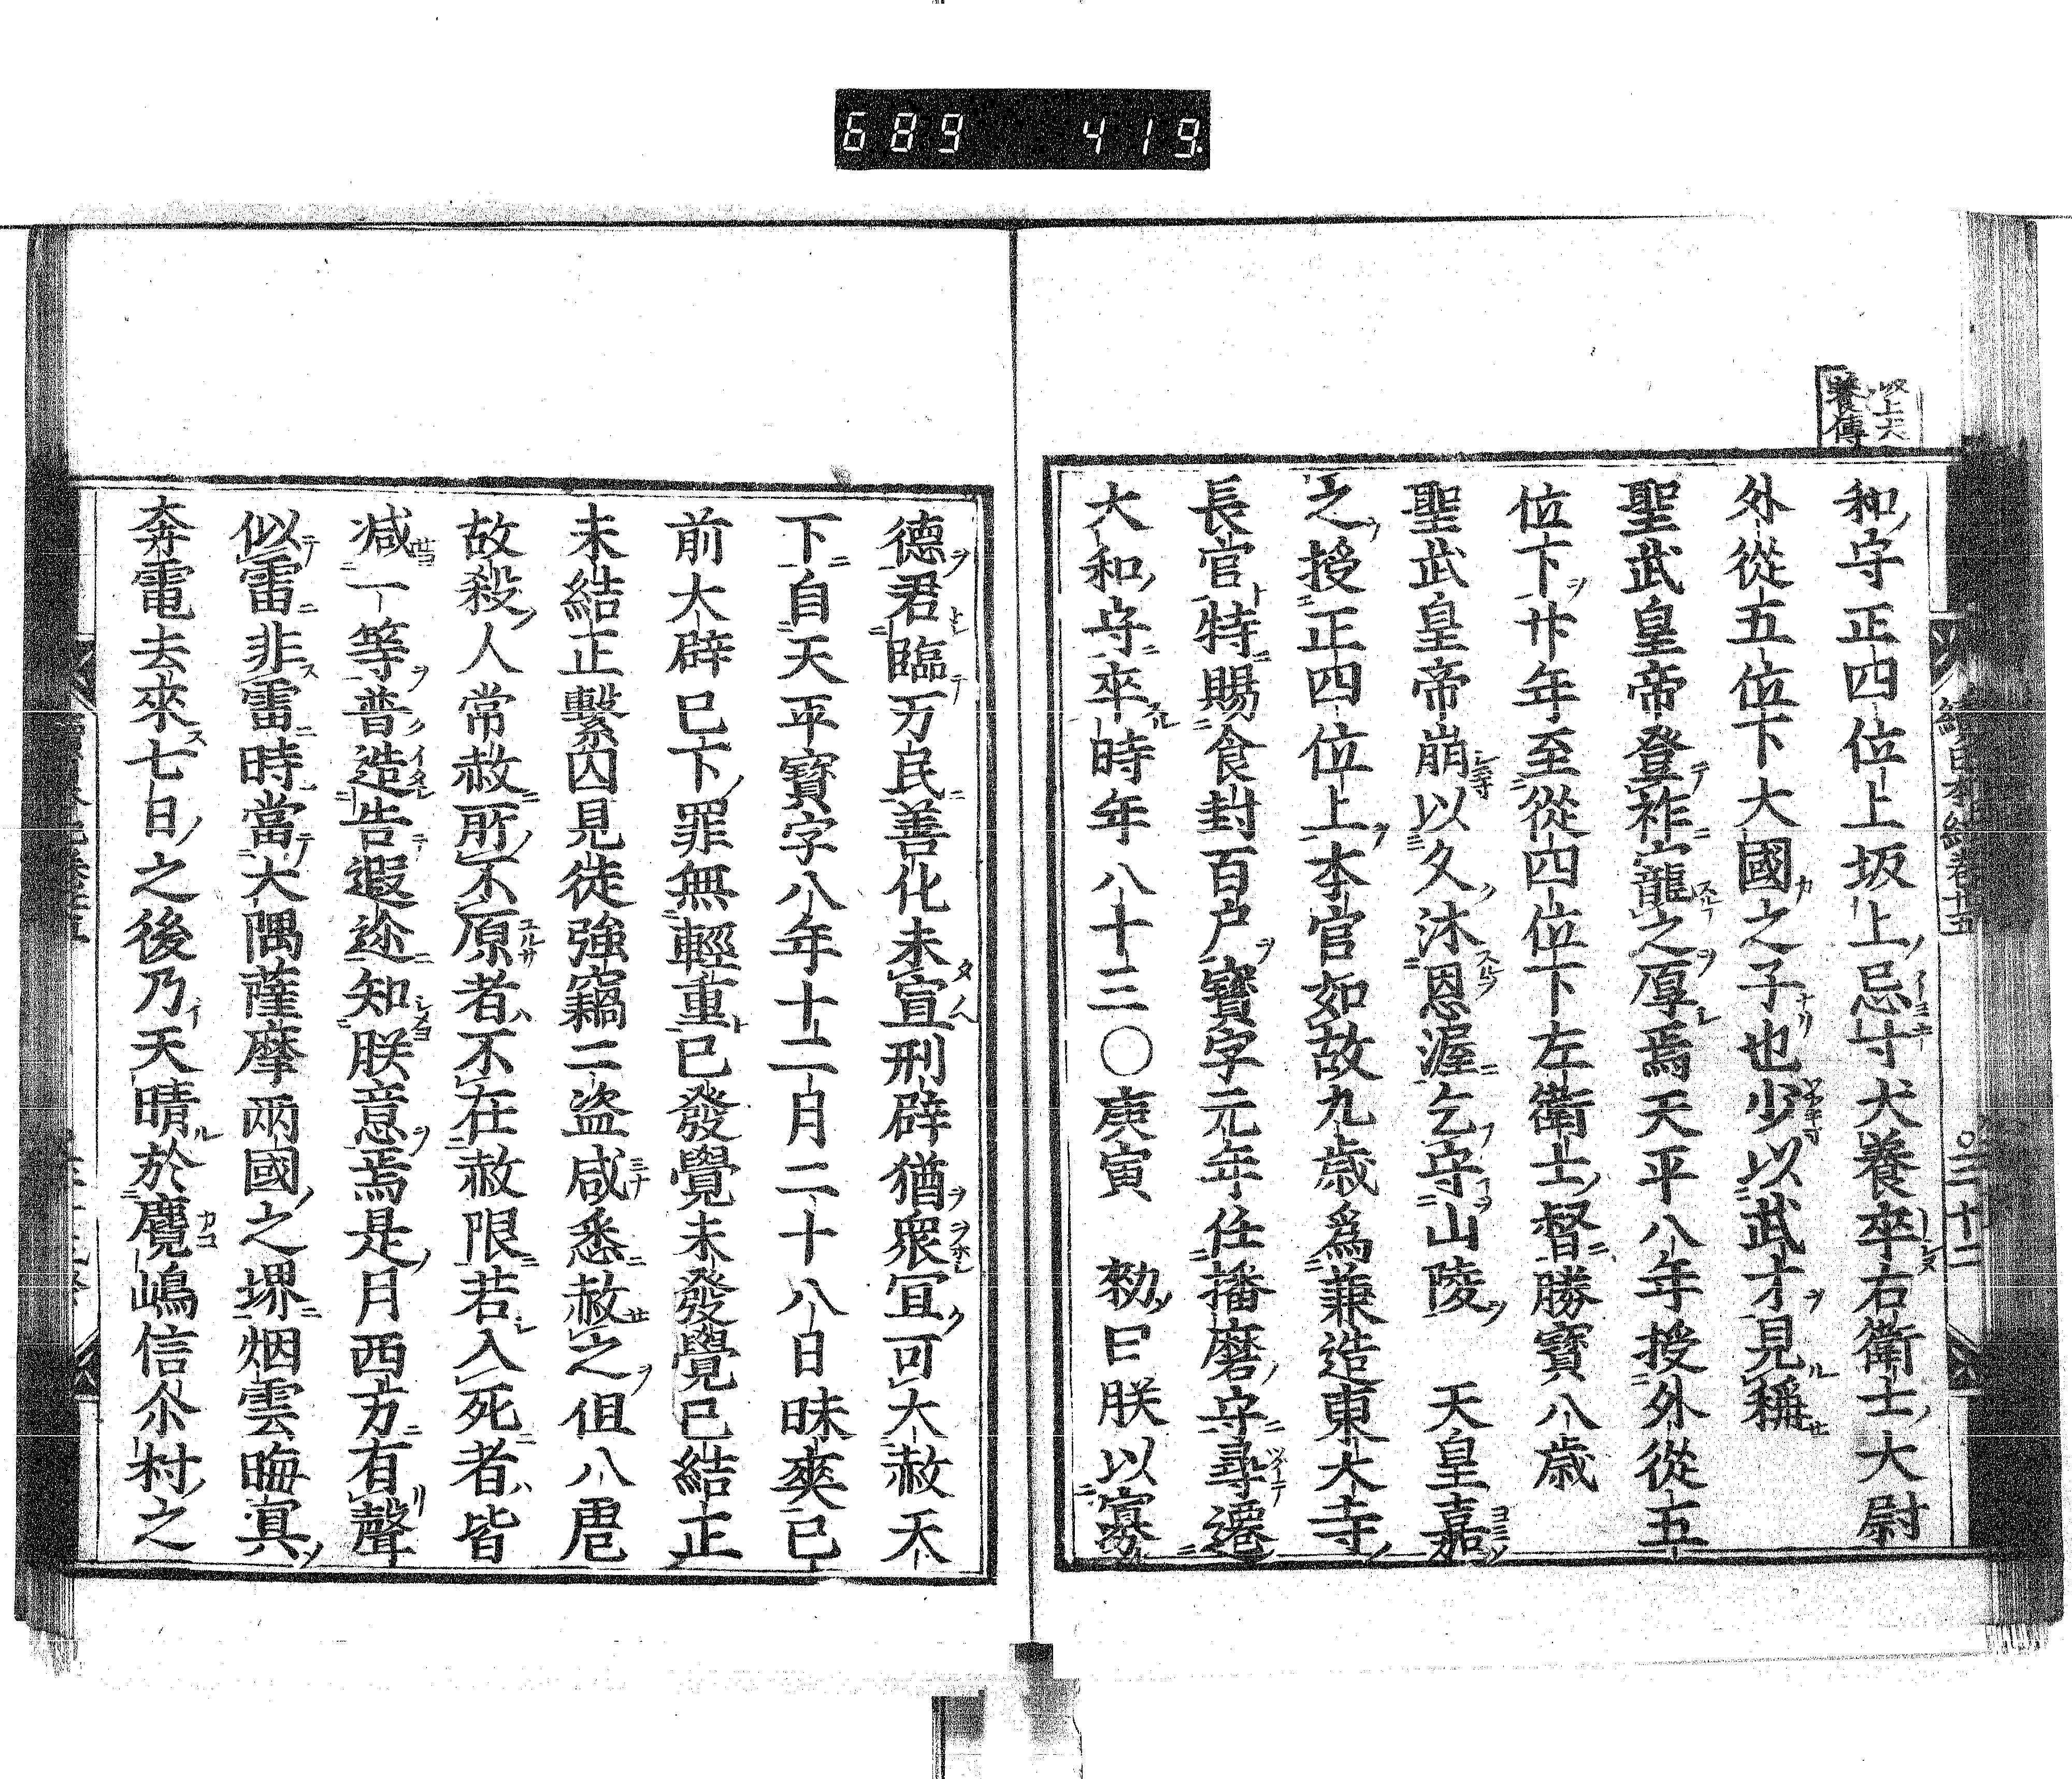 689 419
坂上犬
養傳
和守正四位上坂上忌寸犬養卒右衛士大尉
外從五位下大國之子也少以武才見稱
聖武皇帝登祚寵之厚焉天平八年授外從五
位下廿年至從四位下左衛士督勝寶八歳
聖武皇帝崩以久沐恩渥乞守山陵 天皇嘉
之授正四位上本官如故九歳爲兼造東大寺
長官特賜食封百户寶字元年任播磨守尋遷
大和守卒時年八十三〇庚寅 勑曰朕以寡
德君臨万民善化未宣刑辟猶衆宜可大赦天
下自天平寶字八年十二月二十八日昧爽已
前大辟已下罪無輕重已發覺未發覺已結正
未結正繫囚見徒強竊二盗咸悉赦之但八虐
故殺人常赦所不原者不在赦限若入死者皆
减一等普造告遐迩知朕意焉是月西方有聲
似雷非雷時當大隅薩摩兩國之堺烟雲晦冥
奔電去來七日之後乃天晴於麑嶋信尒村之
續日本紀卷十五
〇三十二